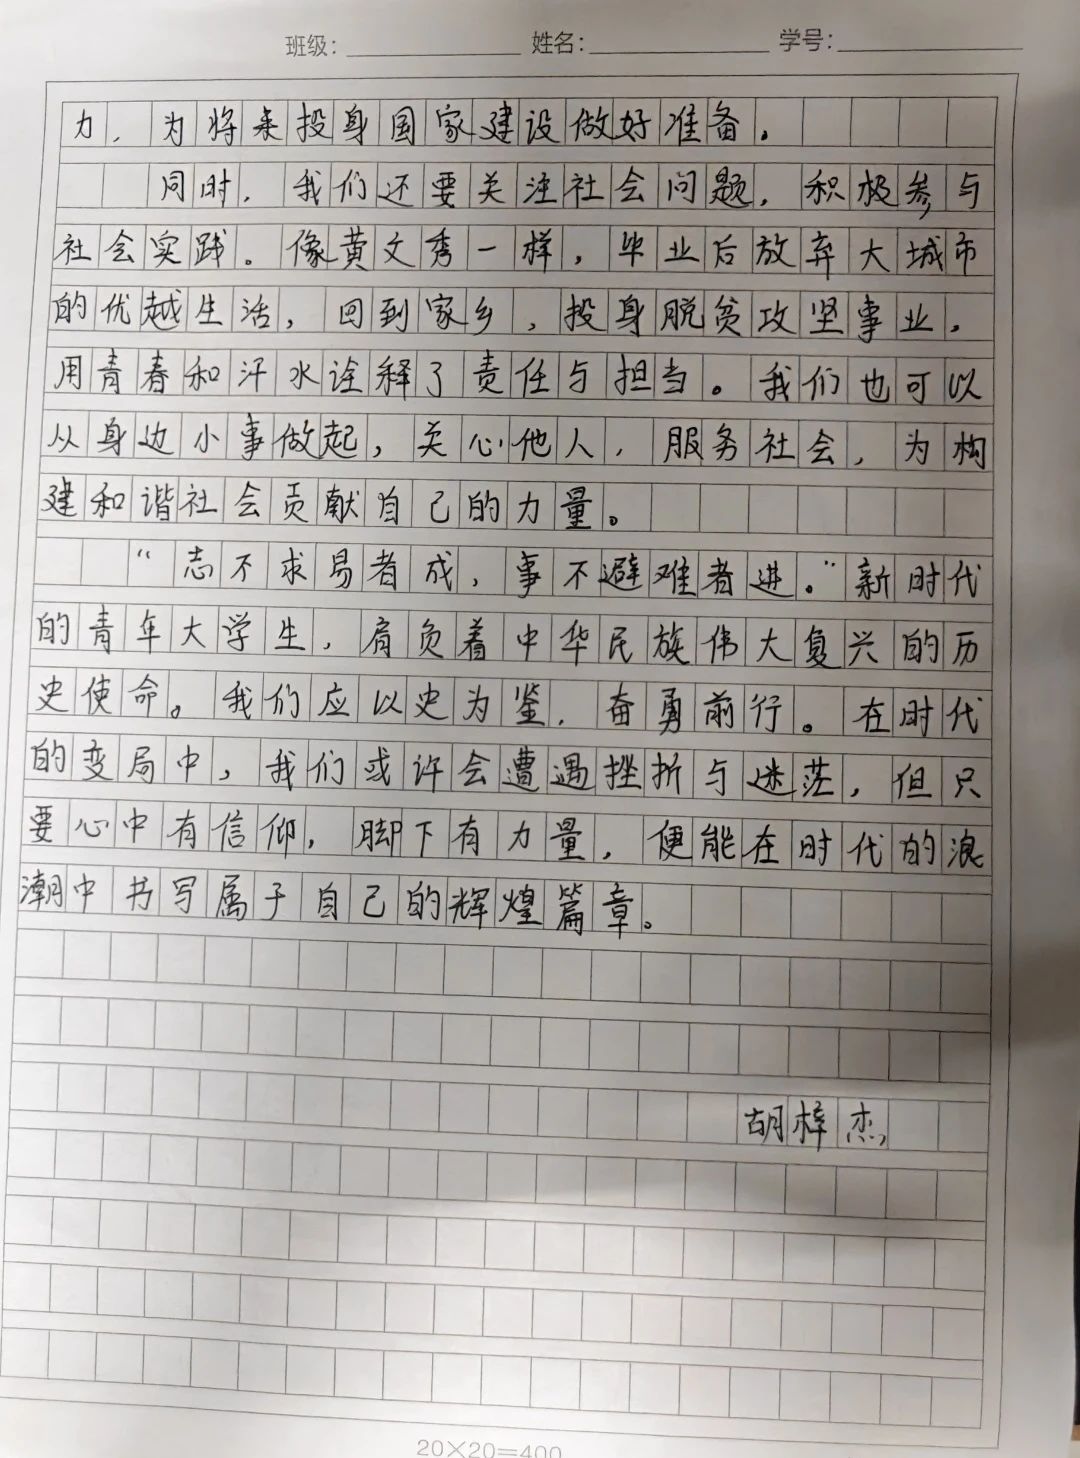 班级： 姓名： 学号：
力，为将来投身国家建设做好准备。
同时，我们还要关注社会问题，积极参与
社会实践。像黄文秀一样，毕业后放弃大城市
的优越生活，回到家乡，投身脱贫攻坚事业，
用青春和汗水诠释了责任与担当。我们也可以
从身边小事做起，关心他人，服务社会，为构
建和谐社会贡献自己的力量。
“志不求易者成，事不避难者进。”新时代
的青年大学生，肩负着中华民族伟大复兴的历
史使命。我们应以史为鉴，奋勇前行。在时代
的变局中，我们或许会遭遇挫折与迷茫，但只
要心中有信仰，脚下有力量，便能在时代的浪
潮中书写属于自己的辉煌篇章。
胡梓杰
20×20=400